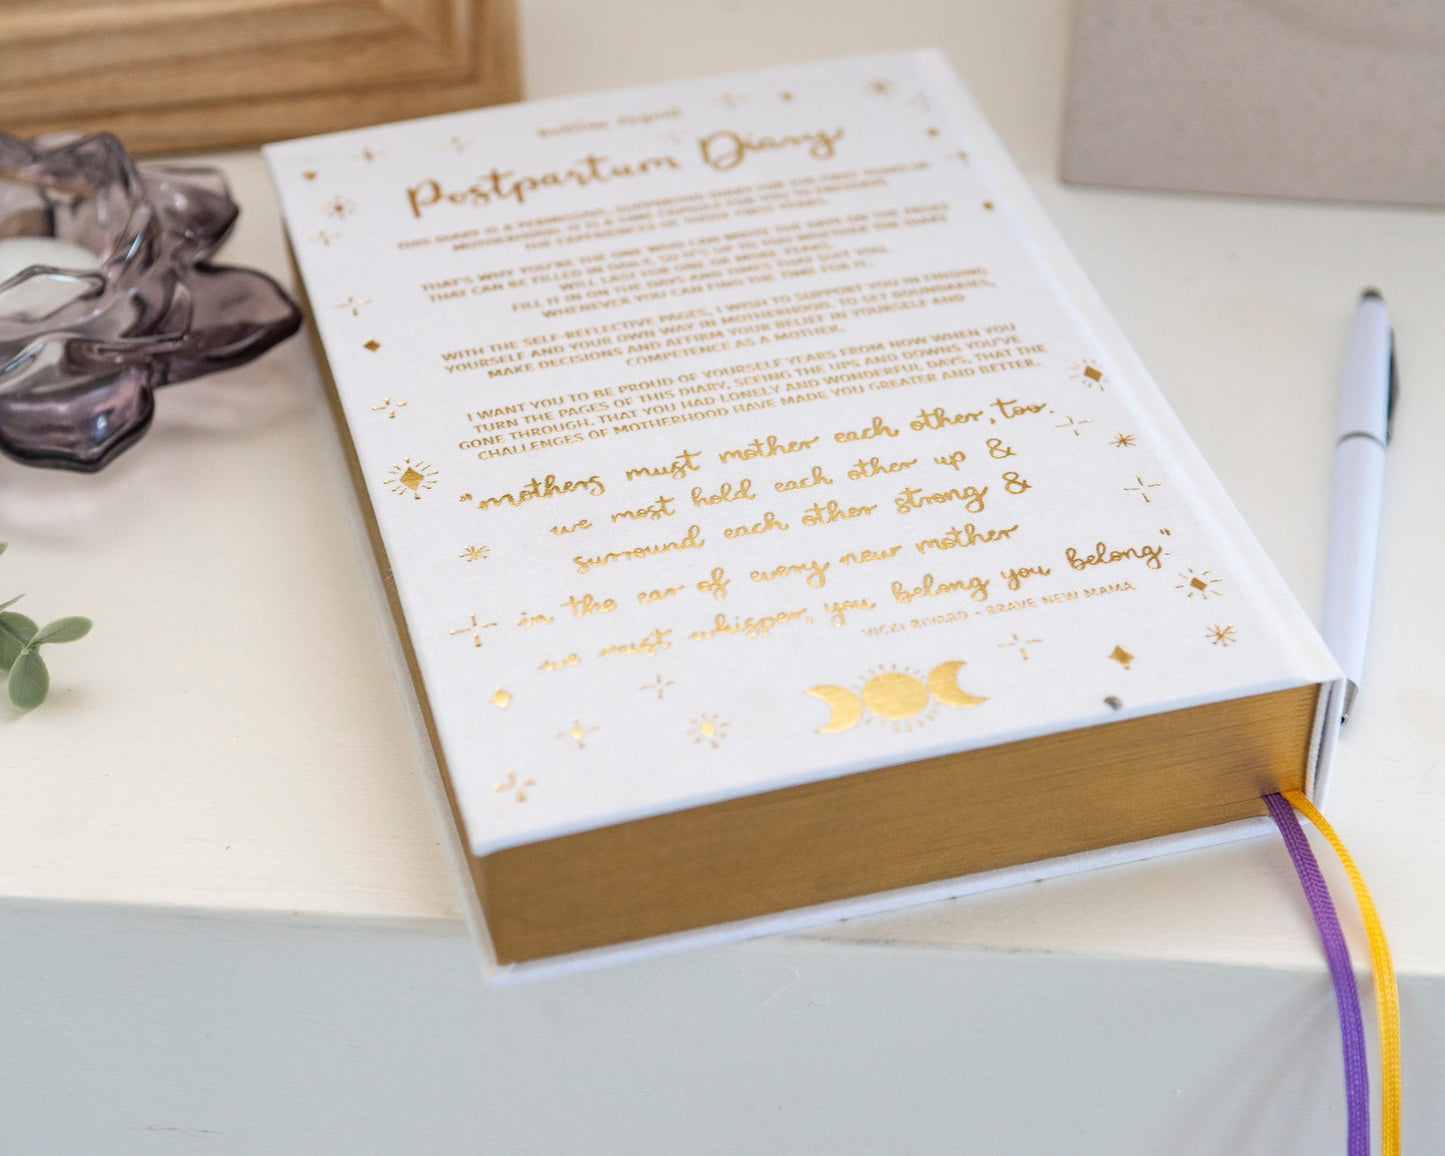 Postpartum Diary
THIS DIARY IS A PERMISSIVE, SUPPORTIVE DIARY FOR THE FIRST YEARS OF
MOTHERHOOD. IT IS A TIME CAPSULE FOR YOU TO PRESERVE
THE EXPERIENCES OF THOSE FIRST YEARS.
THAT'S WHY YOU'RE THE ONE WHO CAN WRITE THE DAYS ON THE PAGES
THAT CAN BE FILLED IN DAILY, SO IT'S UP TO YOU WHETHER THE DIARY
WILL LAST FOR ONE OR MORE YEARS.
FILL IT IN ON THE DAYS AND TIMES THAT SUIT YOU,
WHENEVER YOU CAN FIND THE TIME FOR IT.
WITH THE SELF-REFLECTIVE PAGES, I WISH TO SUPPORT YOU IN FINDING
YOURSELF AND YOUR OWN WAY IN MOTHERHOOD, TO SET BOUNDARIES,
MAKE DECISIONS AND AFFIRM YOUR BELIEF IN YOURSELF AND
COMPETENCE AS A MOTHER.
I WANT YOU TO BE PROUD OF YOURSELF YEARS FROM NOW WHEN YOU
TURN THE PAGES OF THIS DIARY, SEEING THE UPS AND DOWNS YOU'VE
GONE THROUGH. THAT YOU HAD LONELY AND WONDERFUL DAYS, THAT THE
CHALLENGES OF MOTHERHOOD HAVE MADE YOU GREATER AND BETTER.
"mothers must mother each other, too.
we most hold each other up &
surround each other strong &
in the ear of every new mother
we must whisper, you belong you belong."
VICKI RIVARD - BRAVE NEW MAMA